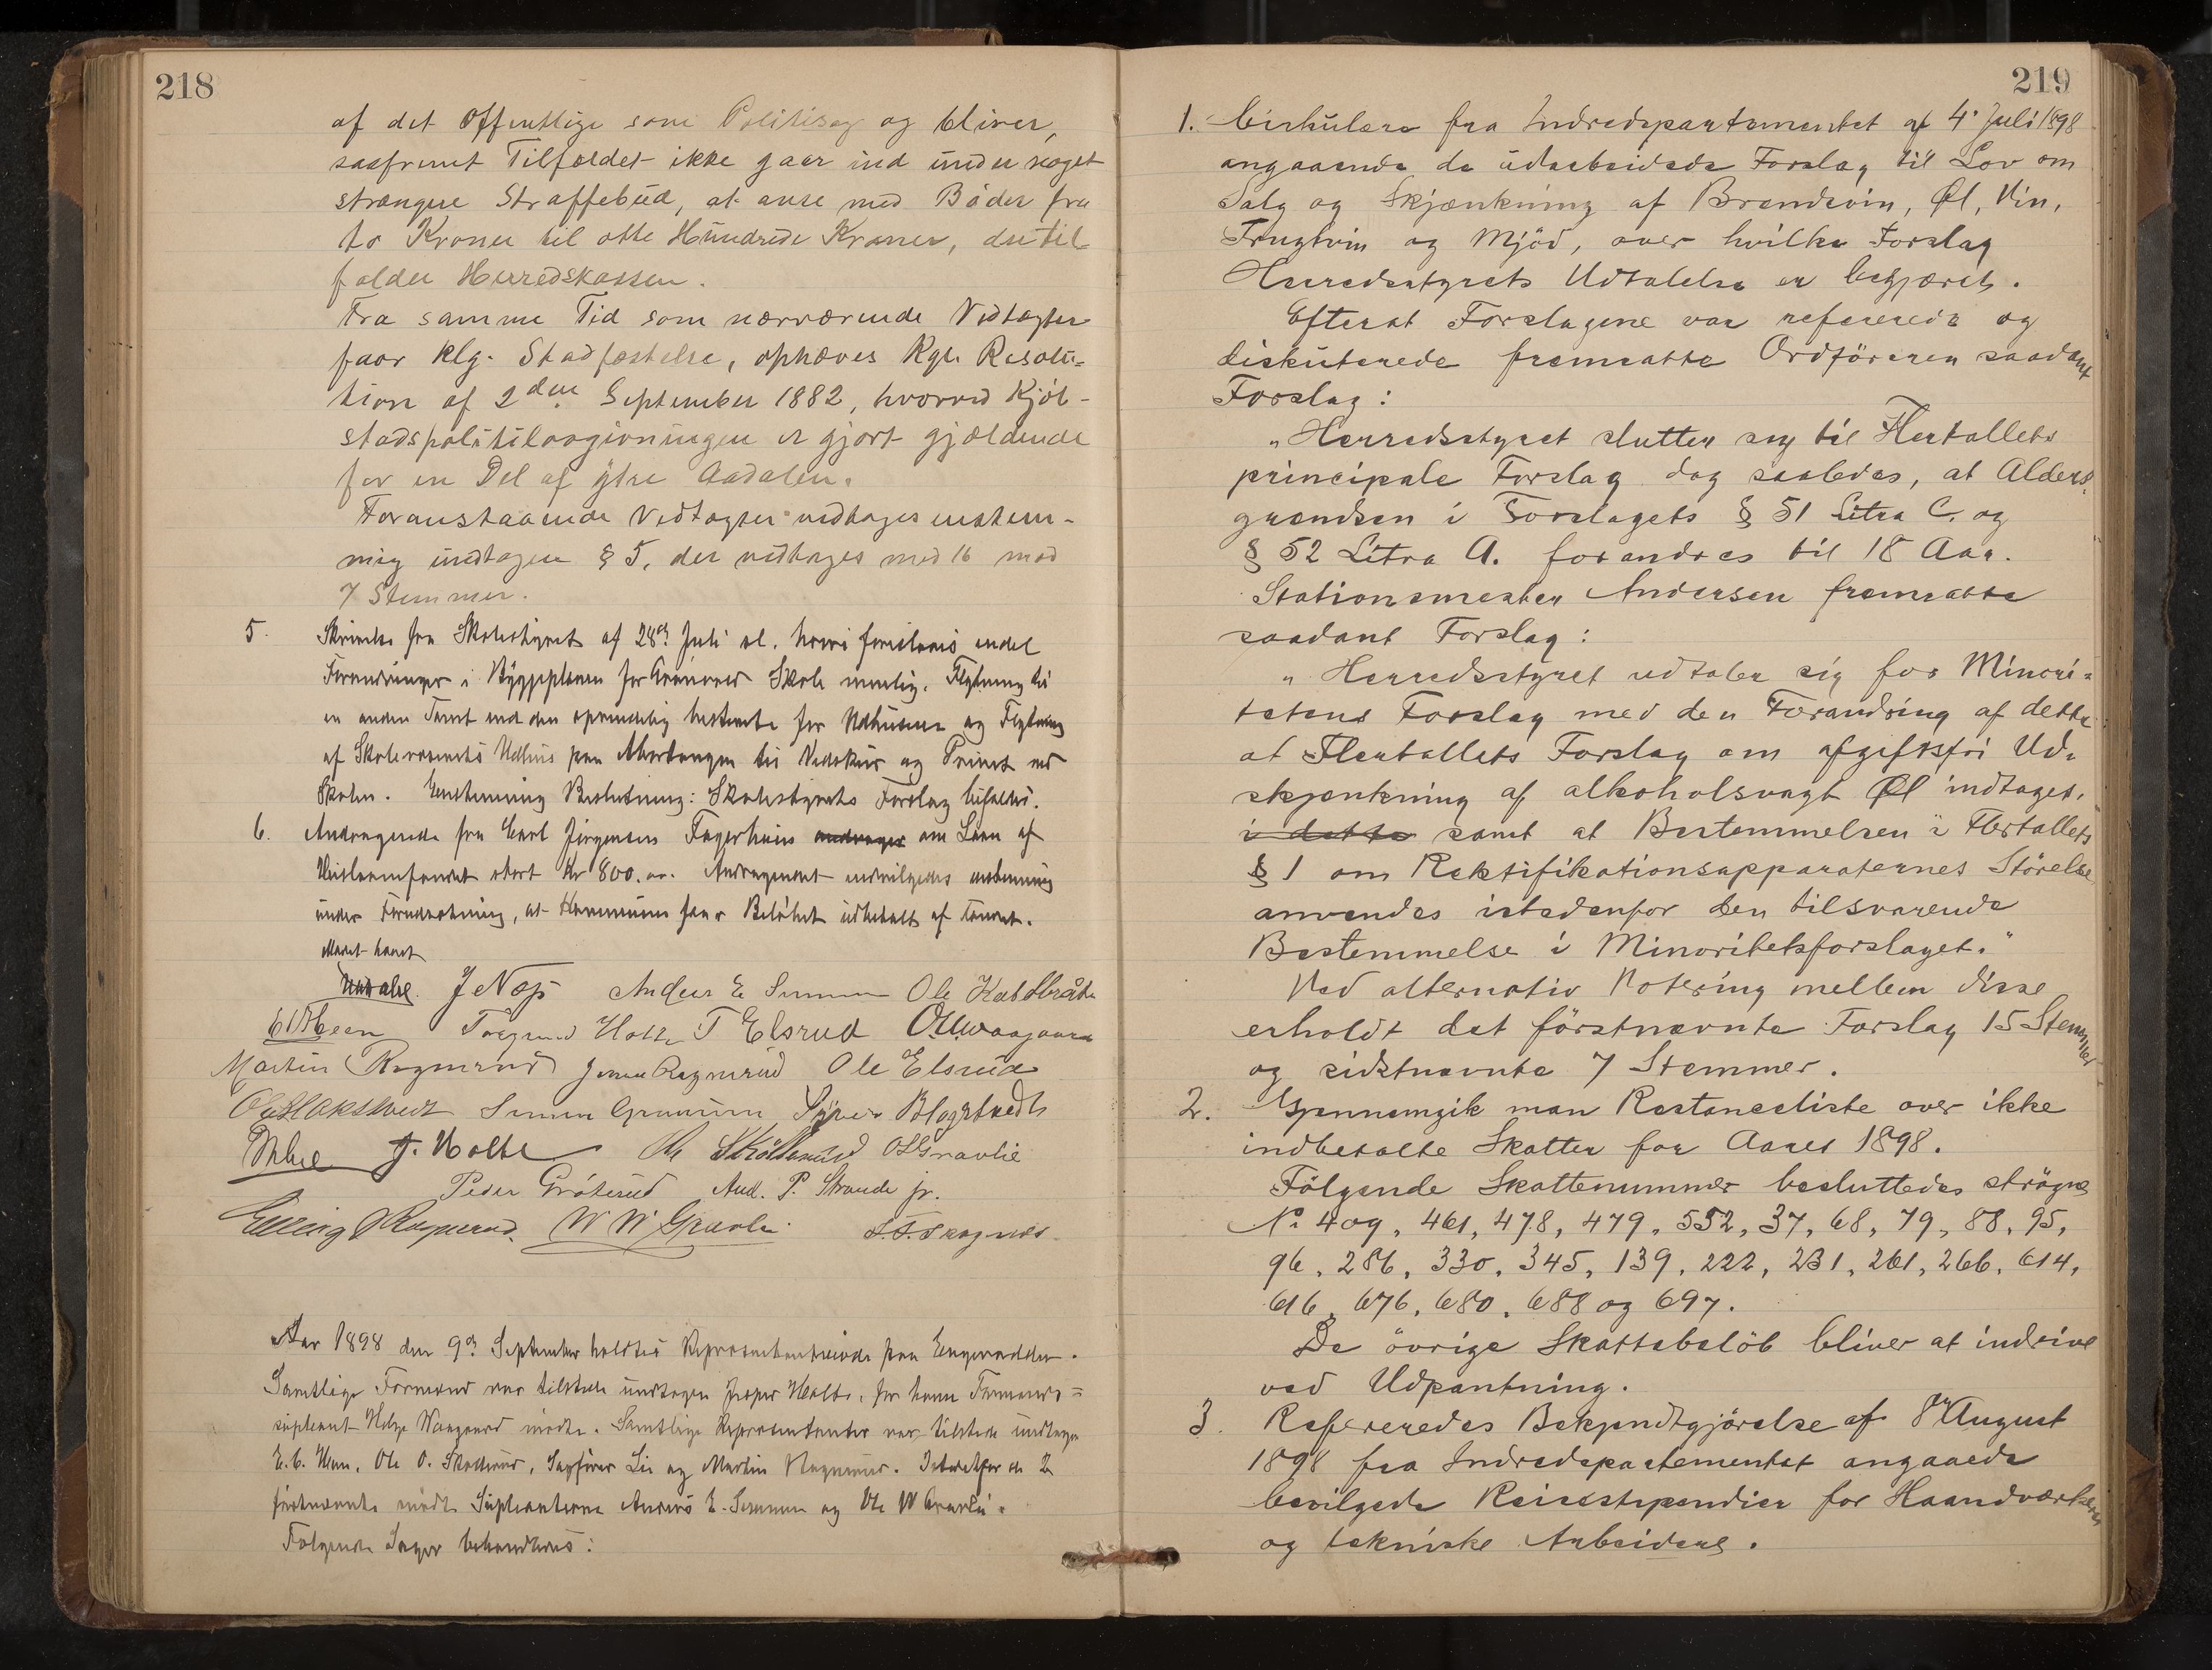 218
af det Offentlige som Politisag og bliver,
saafremt Tilfældet ikke gaar ind under noget
strængere Straffebud, at anse med Bøder fra
to Kroner til otte Hundrede Kroner, der til
falder Herredskassen.
Fra samme Tid som nærværende Vedtægter
faar klg. Stadfæstelse, ophæves Kgl. Resolu=
tion af 2den September 1882, hvorved Kjöb-
stadspolitilovgivningen er gjort gjældende
for en Del af ytre Aadalen.
Foranstaaende Vedtægter vedtages enstem-
mig undtagen § 5, der vedtages med 16 mod
7 Stemmer.
5. Skrivelse fra Skolestyret af 28de Juli d. hvori foreslaaes endel
Forandringer i Byggeplanen for Skole nemlig. Flytning til
en anden Tomt end den oprindelig bestemte for Udhusene og Flytning
af Skolevæsenets Udhus paa til Vedskur og Privet ved
Skolen. Enstemmig Beslutning: Skolestyrets Forslag bifaldes.
6. Andragende fra Carl Jörgensen Fagerhaus andrager om Laan af
stort Kr 800.00. Andragendet indvilgedes enstemmig
under Forudsætning, at Kommunen faar Belöbet udbetalt af Fondet.
Mödet hævet
J Næs Anders E Semmen Ole
T Elsrud
Martin Ragnerud Jens Ragnerud Ole Elsrud
Simen
J. Holte Ole Skollerud O
Peder Gröterud And. P. Strande jr.
Elling Ragnerud.
Aar 1898 den 9de September holdtes Repræsentantmöde paa
Samtlige Formænd var tilstede undtagen Jesper Holte, for ham Formands=
supleant Helge Waagaard mödte. Samtlige Repræsentanter var tilstede undtagen
Ole O. Skollerud, Sagförer Lie og Martin Ragnerud. Istedetfor de 2
förstnævnte mödte Supleanterne Anders E. Semmen og Ole W Gravli.
Fölgende Sager behandledes:
219
1. Cirkulære fra Indredepartementet af 4. Juli 1898
angaaende de udarbeidede Forslag til Lov om
Salg og Skjænkning af Brændevin, Øl, Vin,
Frugtvin og Mjöd, over hvilke Forslag
Herredsstyrets Udtalelse er begjæret.
Efterat Forslagene var refererede og
diskuterede fremsatte Ordföreren saadant
Forslag:
"Herredsstyret slutter sig til Flertallets
principale Forslag dog saaledes, at Alders
grændsen i Forslagets § 51 Litra C. og
§ 52 Litra A. forandres til 18 Aar.
Stationsmester Andersen fremsatte
saadant Forslag:
" Herredsstyret udtaler sig for Minori=
tetens Forslag med den Forandring af dette
at Flertallets Forslag om afgiftsfri Ud=
skjænkning af alkoholsvagt Øl indtages.
i dette samt at Bestemmelsen i Flertallets
§ 1 om Rektifikationsapparaternes Störelse
anvendes istedenfor den tilsvarende
Bestemmelse i Minoritetsforslaget."
Ved alternativ Votering mellem disse
erholdt det förstnævnte Forslag 15 Stemmer
og sidstnævnte 7 Stemmer.
2. Gjennemgik man Restanceliste over ikke
indbetalte Skatter for Aaret 1898.
Fölgende Skattenummer besluttedes strögne
No 409, 461, 478, 479, 552, 37, 68, 79, 88, 95,
96, 286, 330, 345, 139, 222, 231, 261, 266, 614,
616, 676, 680, 688 og 697.
De övrige Skattebelöb bliver at indrive
ved Udpantning.
3. Refereredes Bekjendtgjörelse af 8de August
1898 fra Indredepartementet angaaende
bevilgede Reisestipendier for Haandværkere
og tekniske Arbeidere.